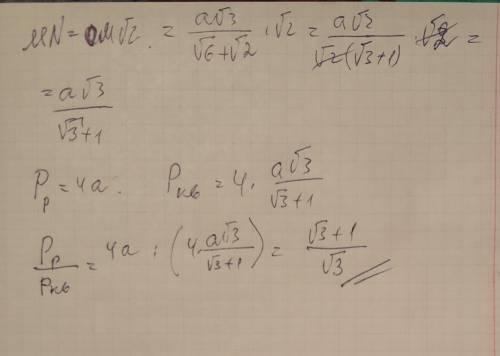 MN = OM√2 = a√3/(√6+√2) · √2 = a√2/(√2(√3+1)) · √2 =
= a√3/(√3+1)
Pр = 4a. Pкв = 4 · a√3/(√3+1)
Pр/Pкв = 4a : (4 · a√3/(√3+1)) = (√3+1)/√3